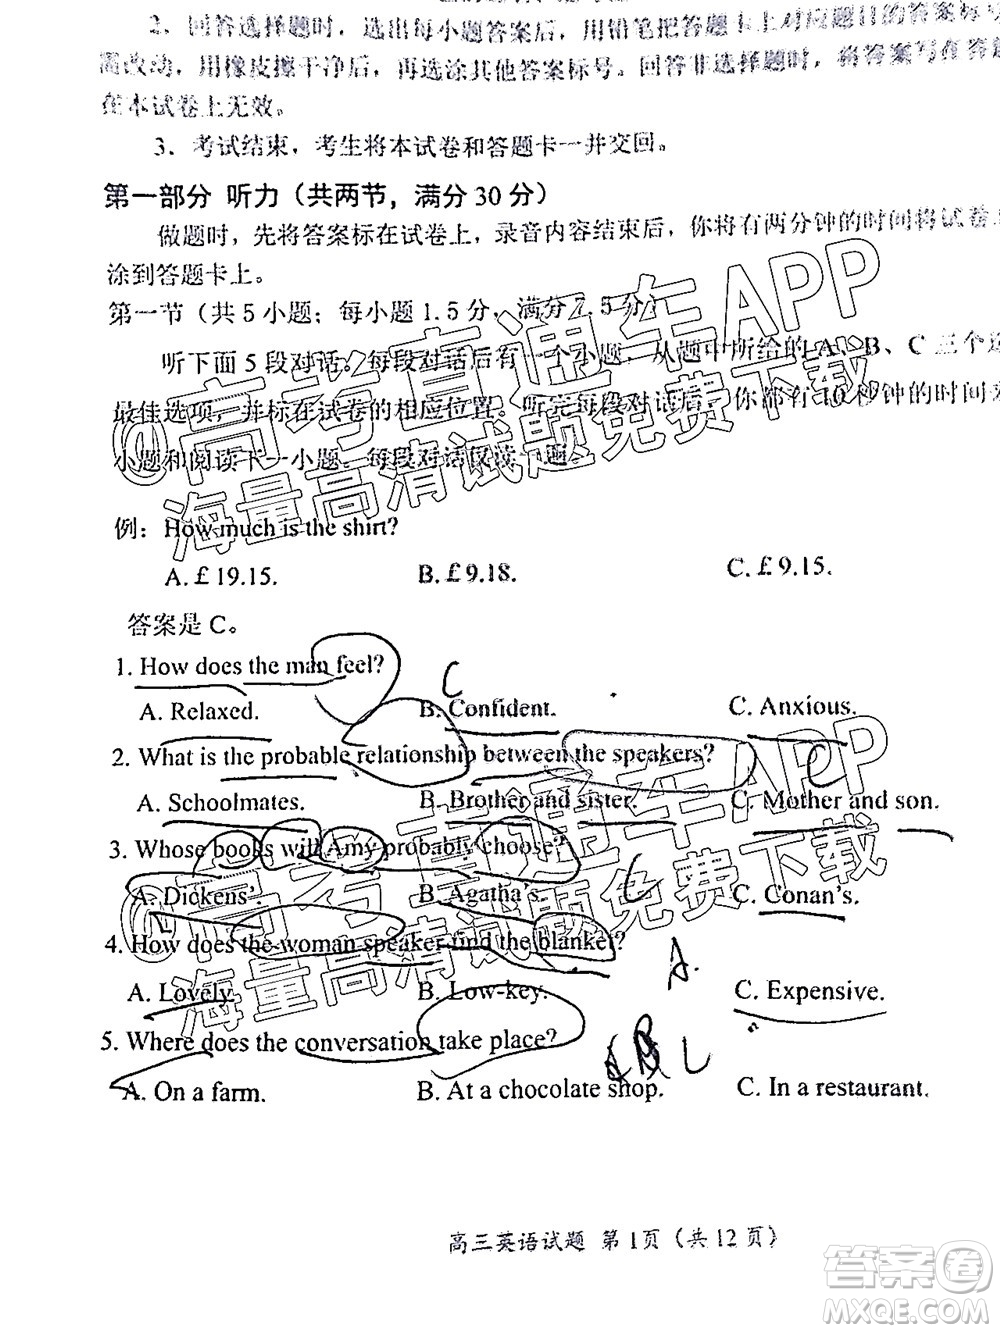 2、回答选择题时，选出每小题答案后，用铅笔把答题卡上对应题目的答案标号
需改动，用橡皮擦干净后，再选涂其他答案标号。回答非选择题时，将答案写在答题
在本试卷上无效。
3．考试结束，考生将本试卷和答题卡一并交回。
第一部分 听力（共两节，满分 30 分）
做题时，先将答案标在试卷上，录音内容结束后，你将有两分钟的时间将试卷
涂到答题卡上。
第一节（共 5 小题；每小题 1.5 分，满分 7.5 分）
听下面 5 段对话。每段对话后有一个小题，从题中所给的 A、B、C 三个选
最佳选项，并标在试卷的相应位置。听完每段对话后，你都有 10 秒钟的时间
小题和阅读下一小题。每段对话仅读一遍。
例：How much is the shirt?
A. £ 19.15. B. £ 9.18. C. £ 9.15.
答案是 C。
1. How does the man feel? C
A. Relaxed. B. Confident. C. Anxious.
2. What is the probable relationship between the speakers? C
A. Schoolmates. B. Brother and sister. C. Mother and son.
3. Whose books will Amy probably choose?
A. Dickens'. B. Agatha's. C. Conan's.
C
4. How does the woman speaker find the blanket? A.
A. Lovely. B. Low-key. C. Expensive.
5. Where does the conversation take place?
A. On a farm. B. At a chocolate shop. C. In a restaurant.
高三英语试题 第 1页（共 12 页）
@高考直通车APP
海量高清试题免费下载
@高考直通车APP
海量高清试题免费下载
答案圈
MXQE.COM